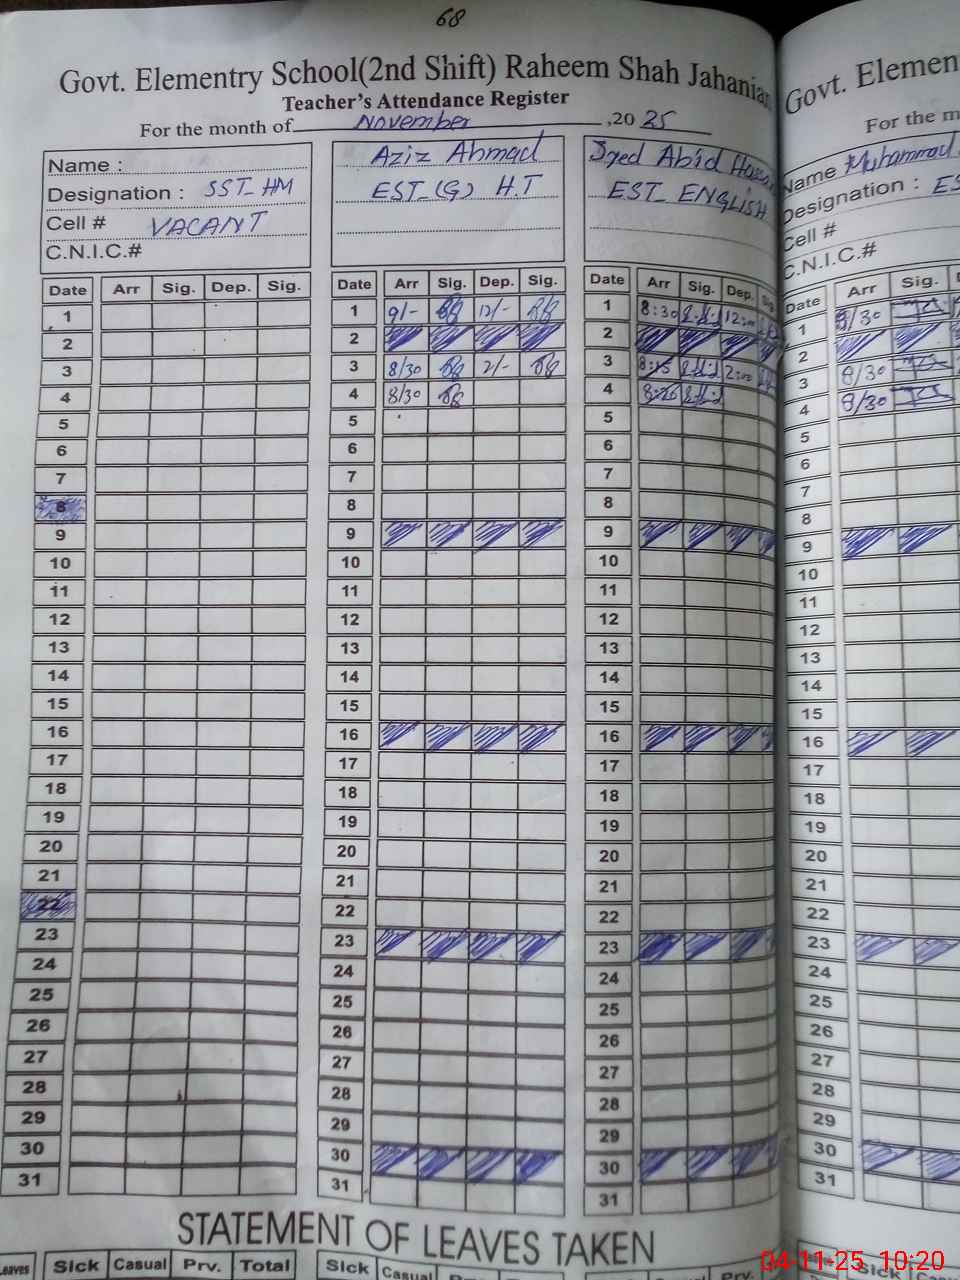 68
Govt. Elementry School(2nd Shift) Raheem Shah Jahanian
Teacher's Attendance Register
For the month of November ,2025
Name :
Designation : SST-HM
Cell # VACANT
C.N.I.C.#
Date Arr Sig. Dep. Sig.
1
2
3
4
5
6
7
8
9
10
11
12
13
14
15
16
17
18
19
20
21
22
23
24
25
26
27
28
29
30
31
Aziz Ahmad
EST-(G) H.T
Date Arr Sig. Dep. Sig.
1 9/- 12/-
2
3 8/30 2/-
4 8/30
5
6
7
8
9
10
11
12
13
14
15
16
17
18
19
20
21
22
23
24
25
26
27
28
29
30
31
Syed Abid
EST- ENGLISH
Date Arr Sig. Dep. Sig
1 8:30 12:00
2
3 8:15 2:00
4
5
6
7
8
9
10
11
12
13
14
15
16
17
18
19
20
21
22
23
24
25
26
27
28
29
30
31
Govt. Elemen
For the m
Name Muhammad
Designation : ES
Cell #
C.N.I.C.#
Date Arr Sig.
1 8/30
2
3 8/30
4 8/30
5
6
7
8
9
10
11
12
13
14
15
16
17
18
19
20
21
22
23
24
25
26
27
28
29
30
31
STATEMENT OF LEAVES TAKEN
Leaves Sick Casual Prv. Total
Sick Casual Prv.
Sick
04-11-25 10:20